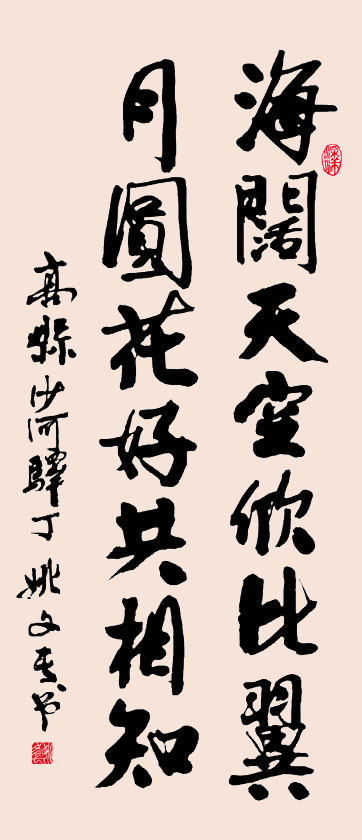 海闊天空欣比翼
月圓花好共相知
高縣沙河驛丁 姚文